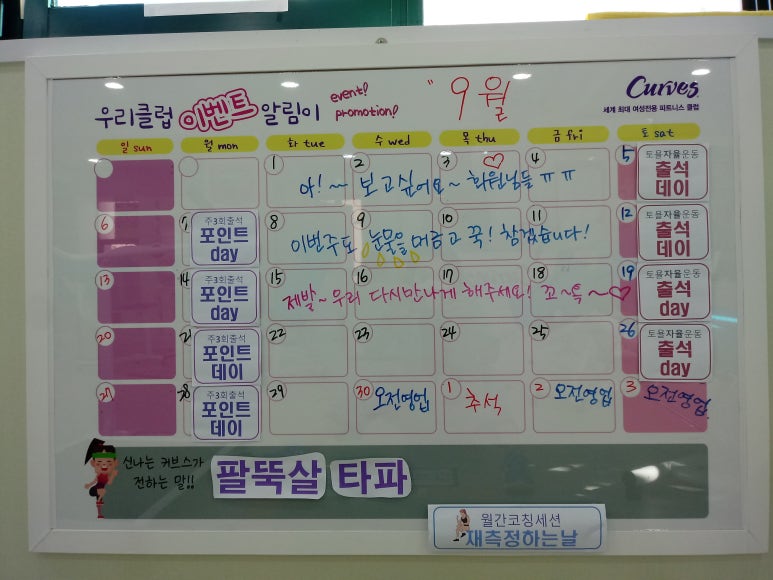 우리클럽 이벤트 알림이 event! promotion! 9월
Curves
세계 최대 여성전용 피트니스 클럽
일 sun 월 mon 화 tue 수 wed 목 thu 금 fri 토 sat
1 2 3 4 5
아!~ 보고싶어요~ 회원님들 ㅠㅠ
토요자율운동
출석
데이
6 7 8 9 10 11 12
주3회출석
포인트
day
이번주도 눈물을 머금고 꾹! 참겠습니다!
토요자율운동
출석
데이
13 14 15 16 17 18 19
주3회출석
포인트
day
제발~우리 다시만나게 해주세요! 꼬~옥~♡
토요자율운동
출석
day
20 21 22 23 24 25 26
주3회출석
포인트
데이
토요자율운동
출석
day
27 28 29 30 1 2 3
주3회출석
포인트
데이
오전영업 추석 오전영업 오전영업
신나는 커브스가
전하는 말!!
팔뚝살 타파
월간코칭세션
재측정하는날